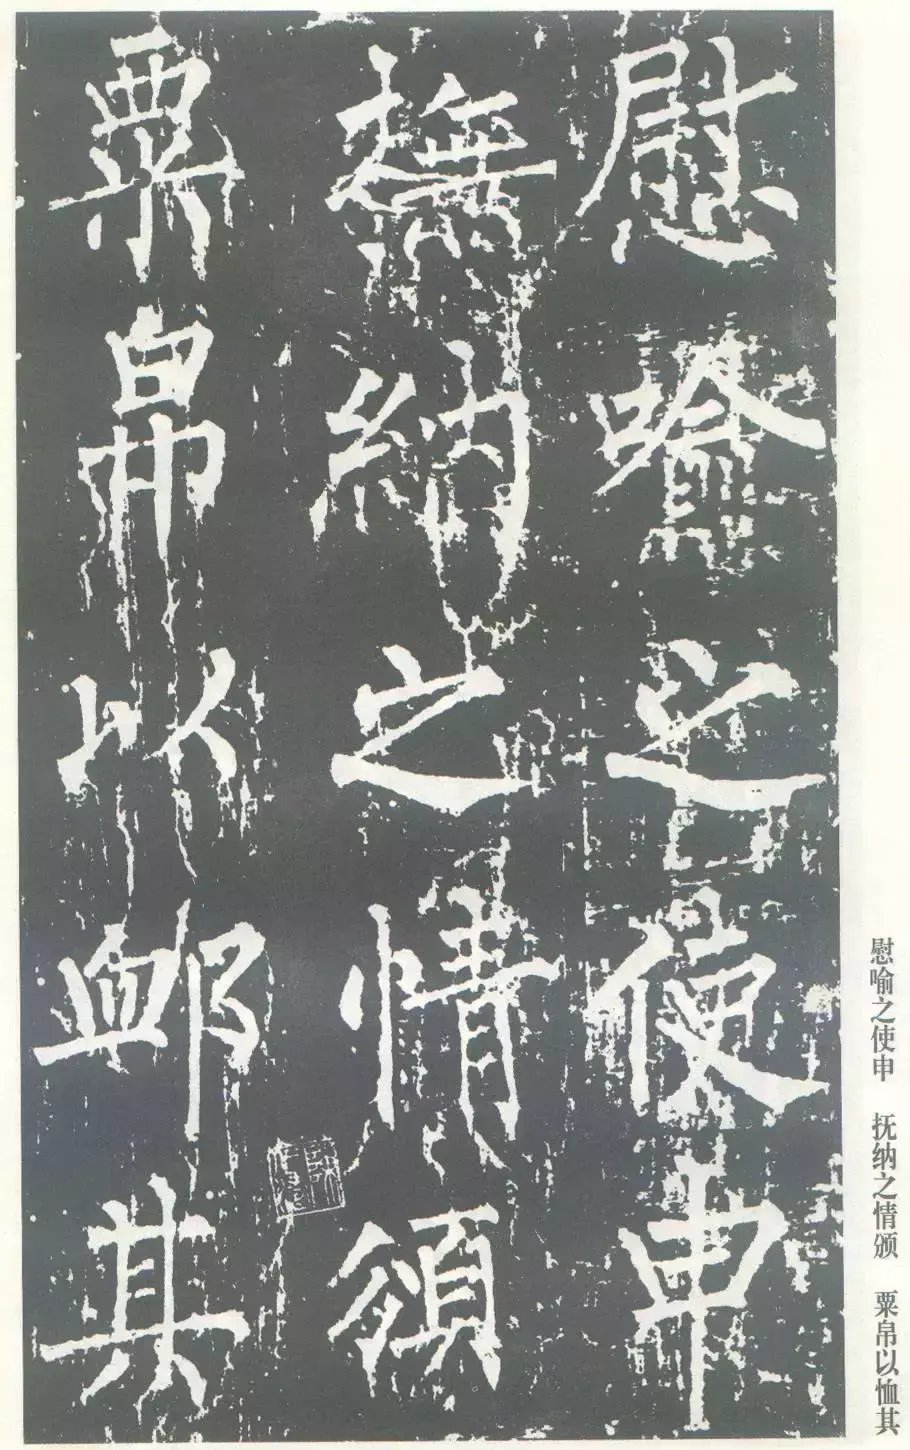 慰喻之使申
撫納之情頒
粟帛以卹其
慰喻之使申 抚纳之情颁 粟帛以恤其